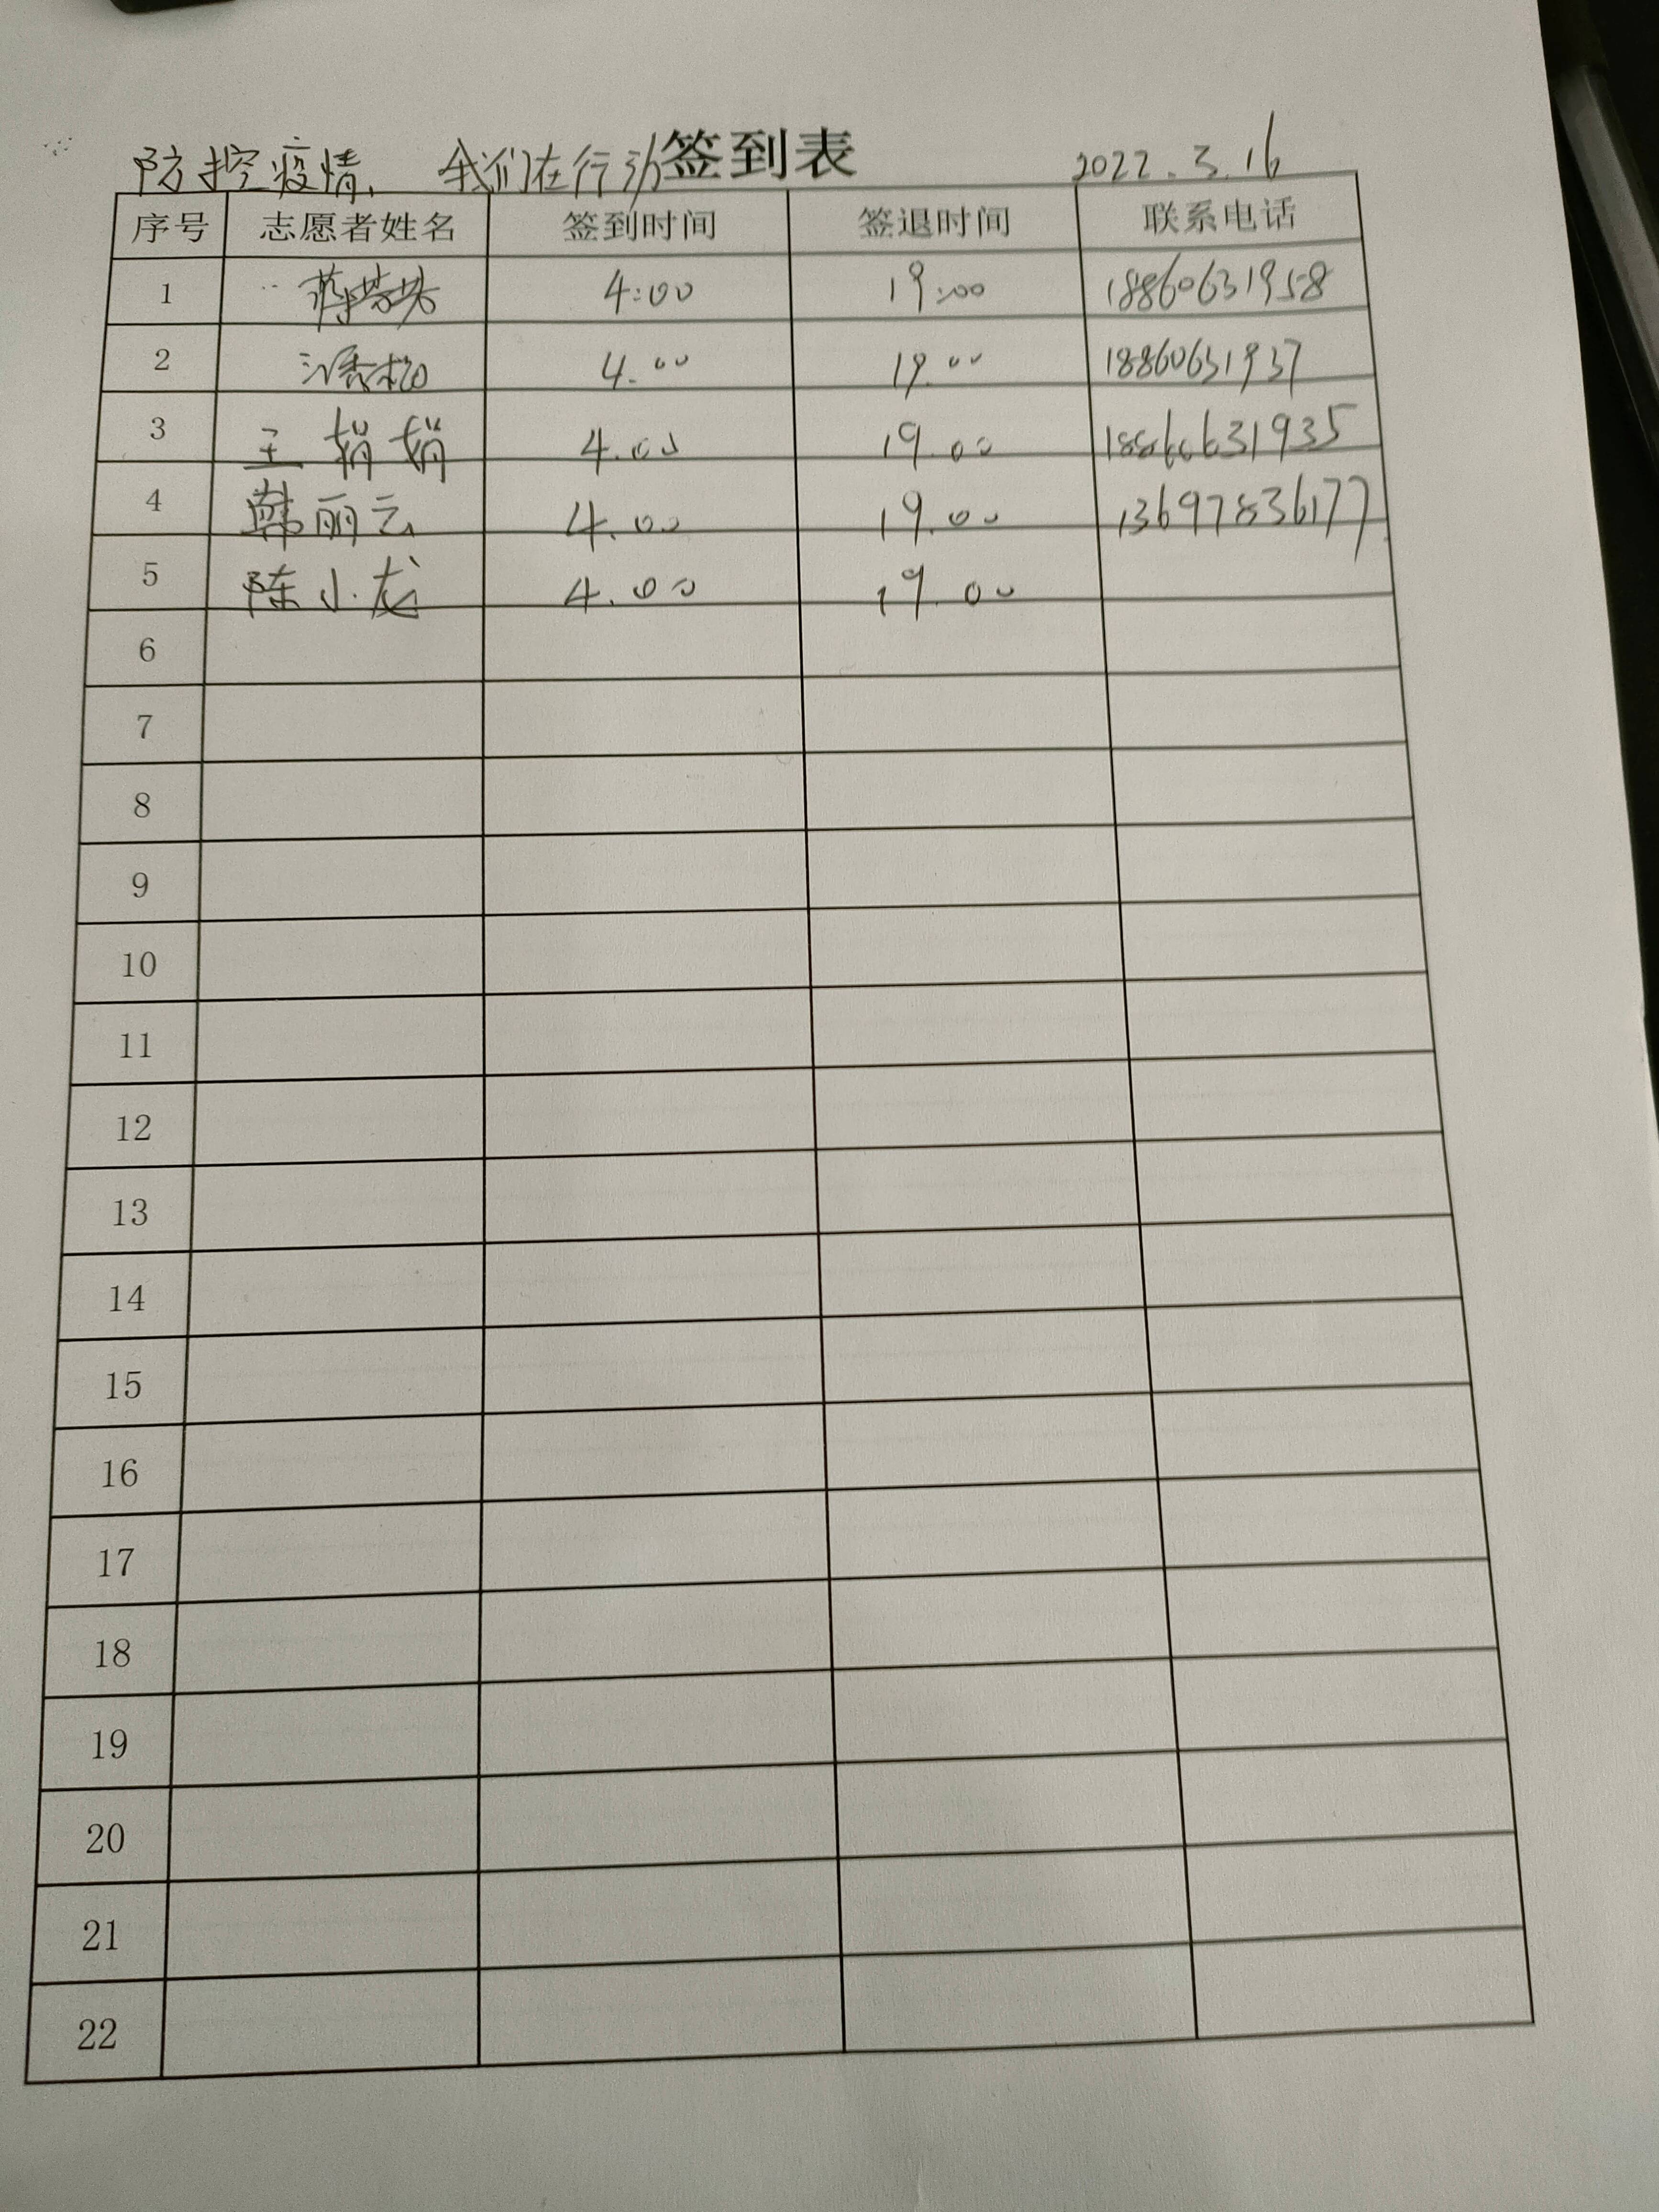 防控疫情、我们在行动签到表 2022.3.16
序号 志愿者姓名 签到时间 签退时间 联系电话
1 4:00 19:00 18860631958
2 4.00 19.00 18860631937
3 王娟娟 4.00 19.00 18860631935
4 韩丽云 4.00 19.00 13697836177
5 陈小龙 4.00 19.00
6
7
8
9
10
11
12
13
14
15
16
17
18
19
20
21
22